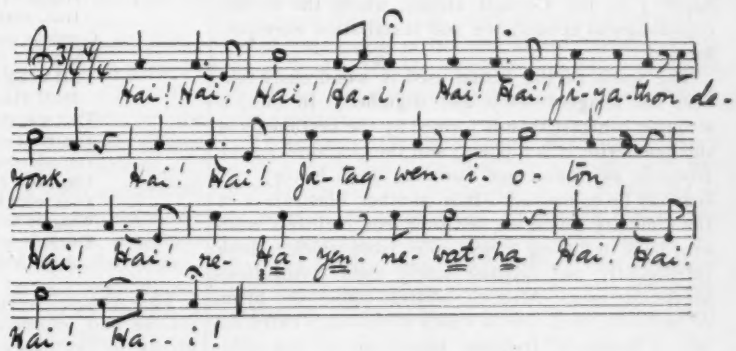 3/4 4/4
Hai! Hai! Hai! Ha-i! Hai! Hai! Ji-ya-thon de-
yonk. Hai! Hai! Ja-tag-wen-i-o-tōn
Hai! Hai! ne-Ha-yen-ne-wat-ha Hai! Hai!
Hai! Ha--i!